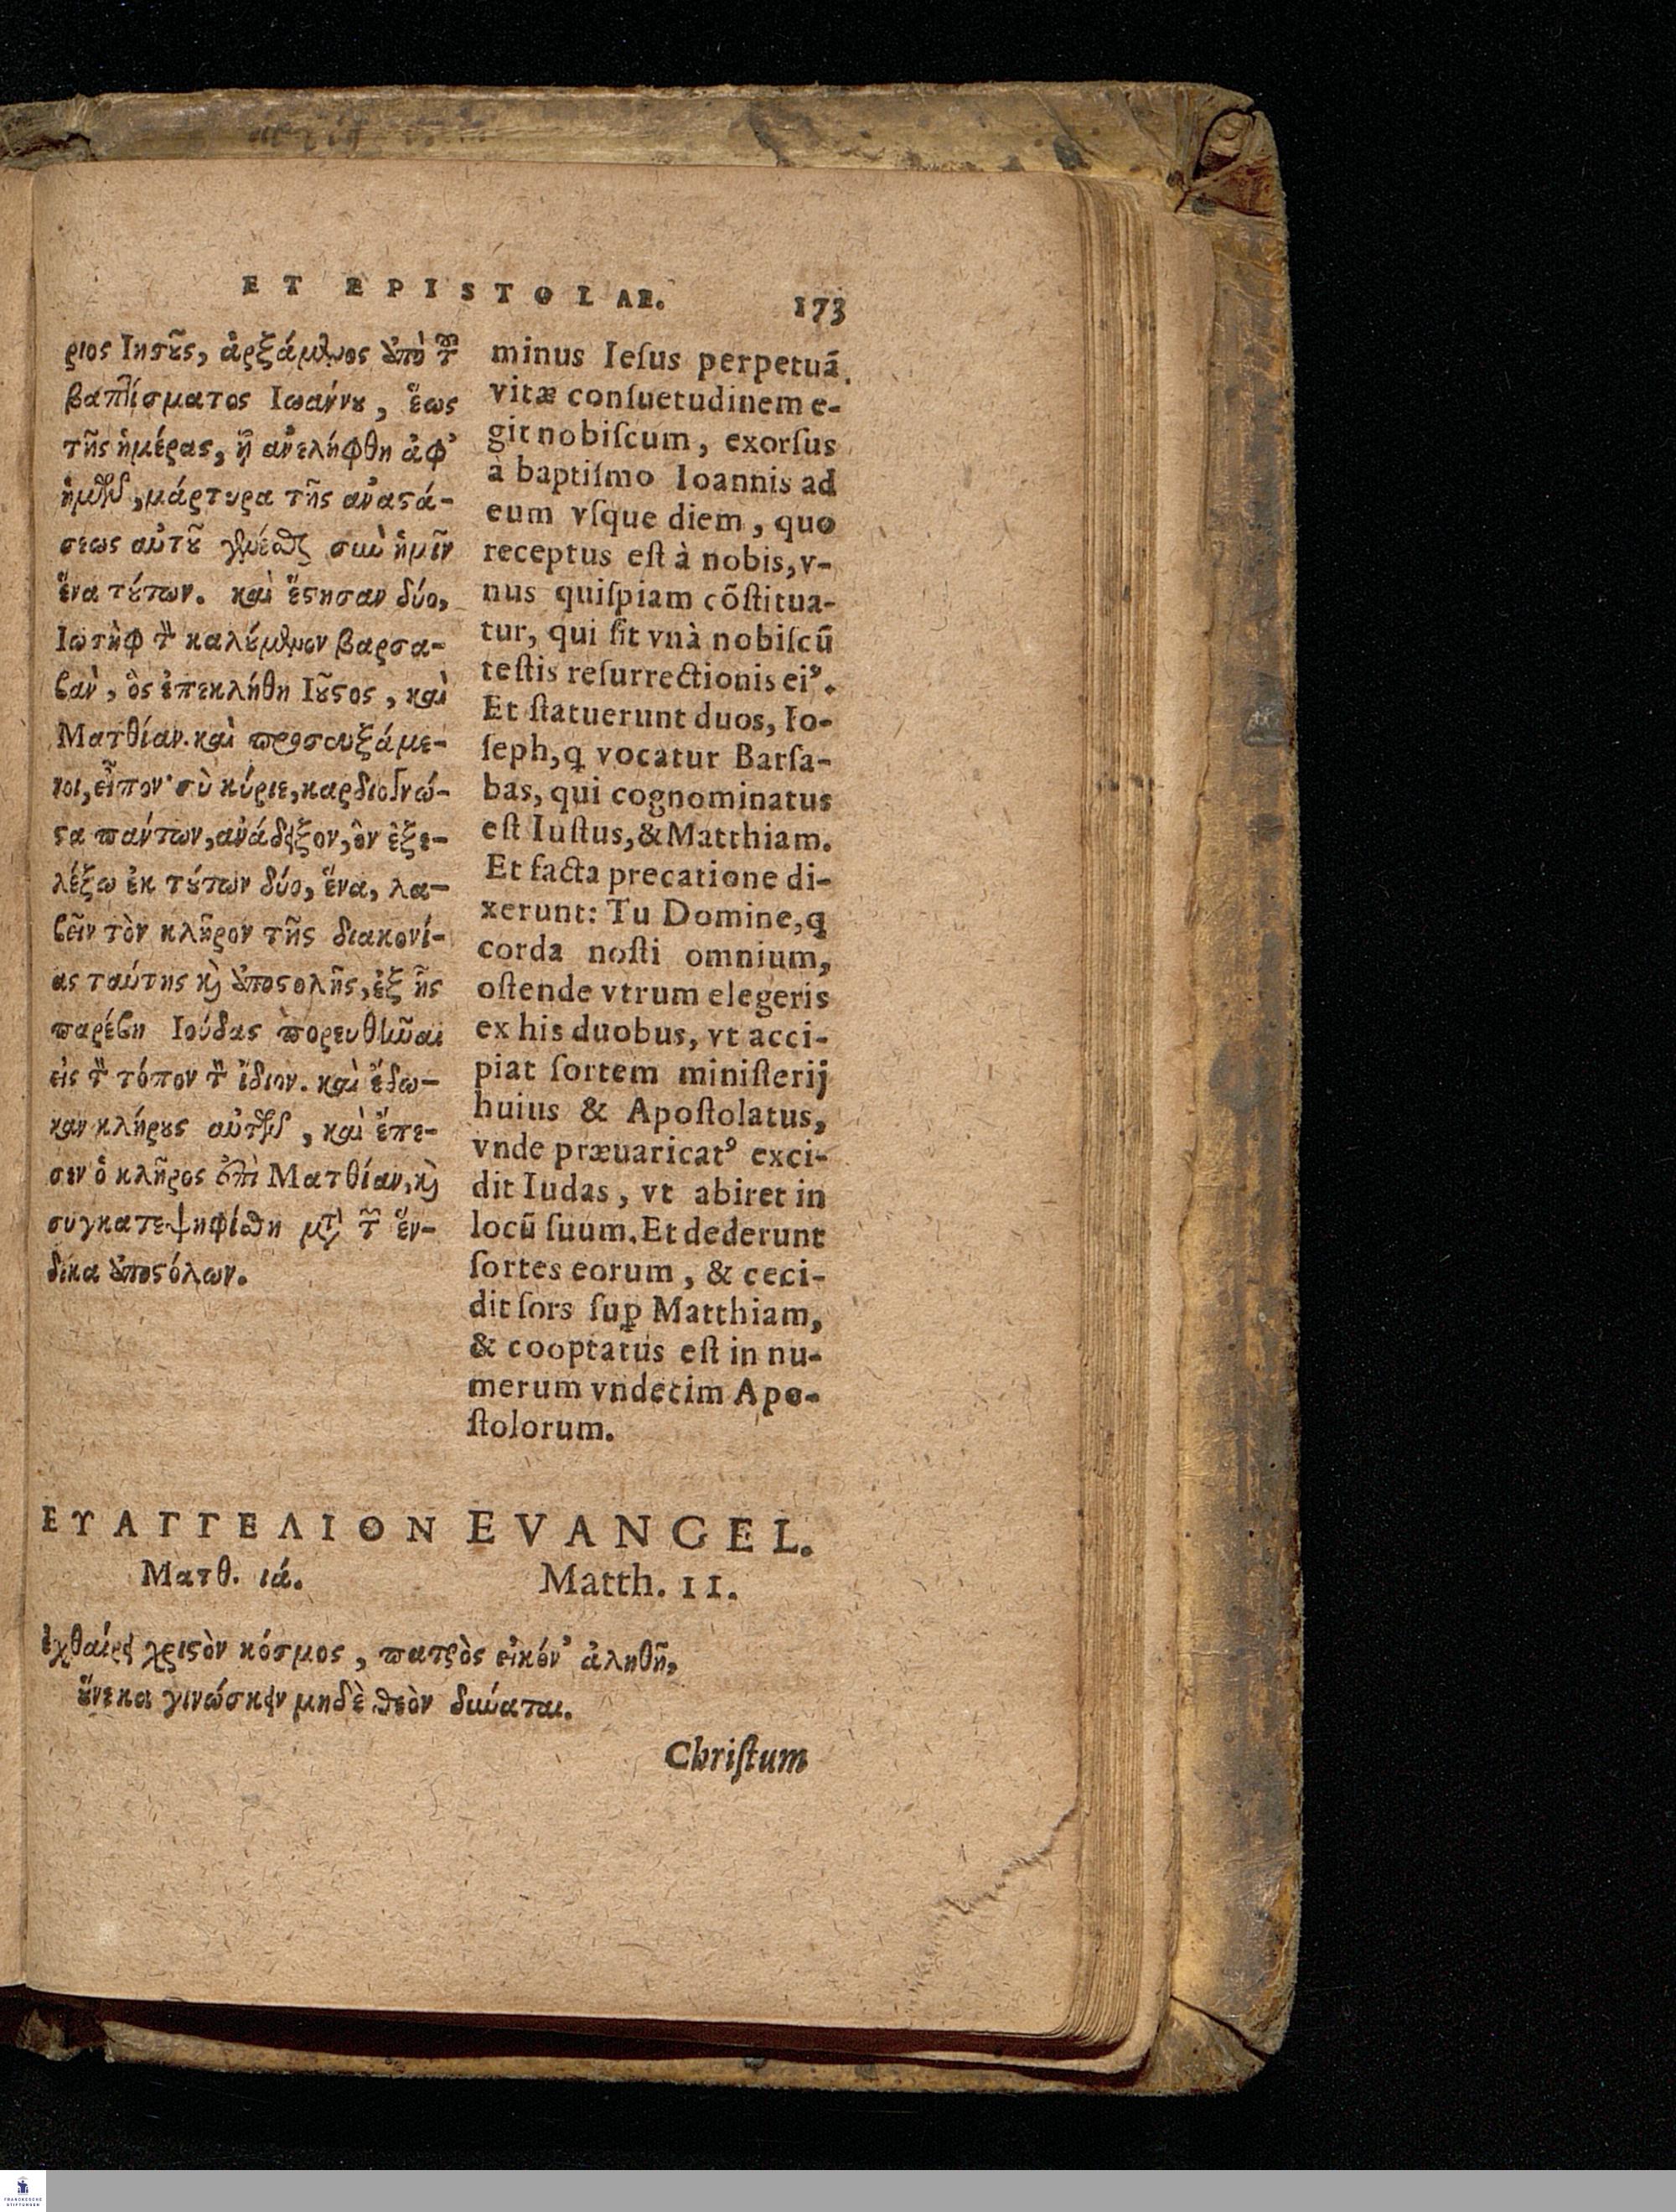 ET EPISTOLAE. 173
ριος Ιησȣ͂ς, ἀρξάμενος ἀπὸ τȣ͂
βαπτίσματος Ιωάννȣ, ἕως
τῆς ἡμέρας, ᾗ ἀνελήφθη ἀφ᾽
ἡμῶν, μάρτυρα τῆς ἀναϛά-
σεως αὐτȣ͂ γενέσθαι σὺν ἡμῖν
ἕνα τȣ́των. καὶ ἔϛησαν δύο,
Ιωσὴφ τὸν καλȣ́μενον βαρσα-
βαν, ὃς ἐπεκλήθη Ιȣ͂ϛος, καὶ
Ματθίαν. καὶ προσευξάμε-
νοι, εἶπον· σὺ κύριε, καρδιογνώ-
ϛα πάντων, ἀνάδειξον, ὃν ἐξε-
λέξω ἐκ τȣ́των δύο, ἕνα, λα-
βεῖν τὸν κλῆρον τῆς διακονί-
ας ταύτης κỳ ἀποϛολῆς, ἐξ ἧς
παρέβη Ιούδας πορευθῆναι
εἰς τὸν τόπον τὸν ἴδιον. καὶ ἔδω-
καν κλήρȣς αὐτῶν, καὶ ἔπε-
σεν ὁ κλῆρος ἐπὶ Ματθίαν, κỳ
συγκατεψηφίσθη μετὰ τῶν ἕν-
δεκα ἀποϛόλων.
minus Ieſus perpetuã
vitæ conſuetudinem e-
git nobiſcum, exorſus
à baptiſmo Ioannis ad
eum vſque diem, quo
receptus eſt à nobis, v-
nus quiſpiam cõſtitua-
tur, qui ſit vnà nobiſcũ
teſtis reſurrectionis ei⁹.
Et ſtatuerunt duos, Io-
ſeph, q vocatur Barſa-
bas, qui cognominatus
eſt Iuſtus, & Matthiam.
Et facta precatione di-
xerunt: Tu Domine, q
corda noſti omnium,
oſtende vtrum elegeris
ex his duobus, vt acci-
piat ſortem miniſterij
huius & Apoſtolatus,
vnde præuaricat⁹ exci-
dit Iudas, vt abiret in
locũ ſuum. Et dederunt
ſortes eorum, & ceci-
dit ſors ſuꝑ Matthiam,
& cooptatus eſt in nu-
merum vndecim Apo-
ſtolorum.
ΕΥΑΓΓΕΛΙΟΝ EVANGEL.
Ματθ. ιά. Matth. 11.
ἐχθαίρει χριϛὸν κόσμος, πατρὸς εἰκόν᾽ ἀληθῆ,
ȣ̔́νεκα γινώσκειν μηδὲ θεὸν δύναται.
Chriſtum
FRANCKESCHE
STIFTUNGEN